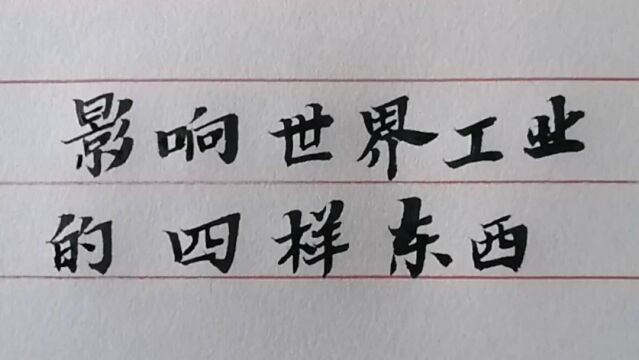 影响世界工业
的四样东西